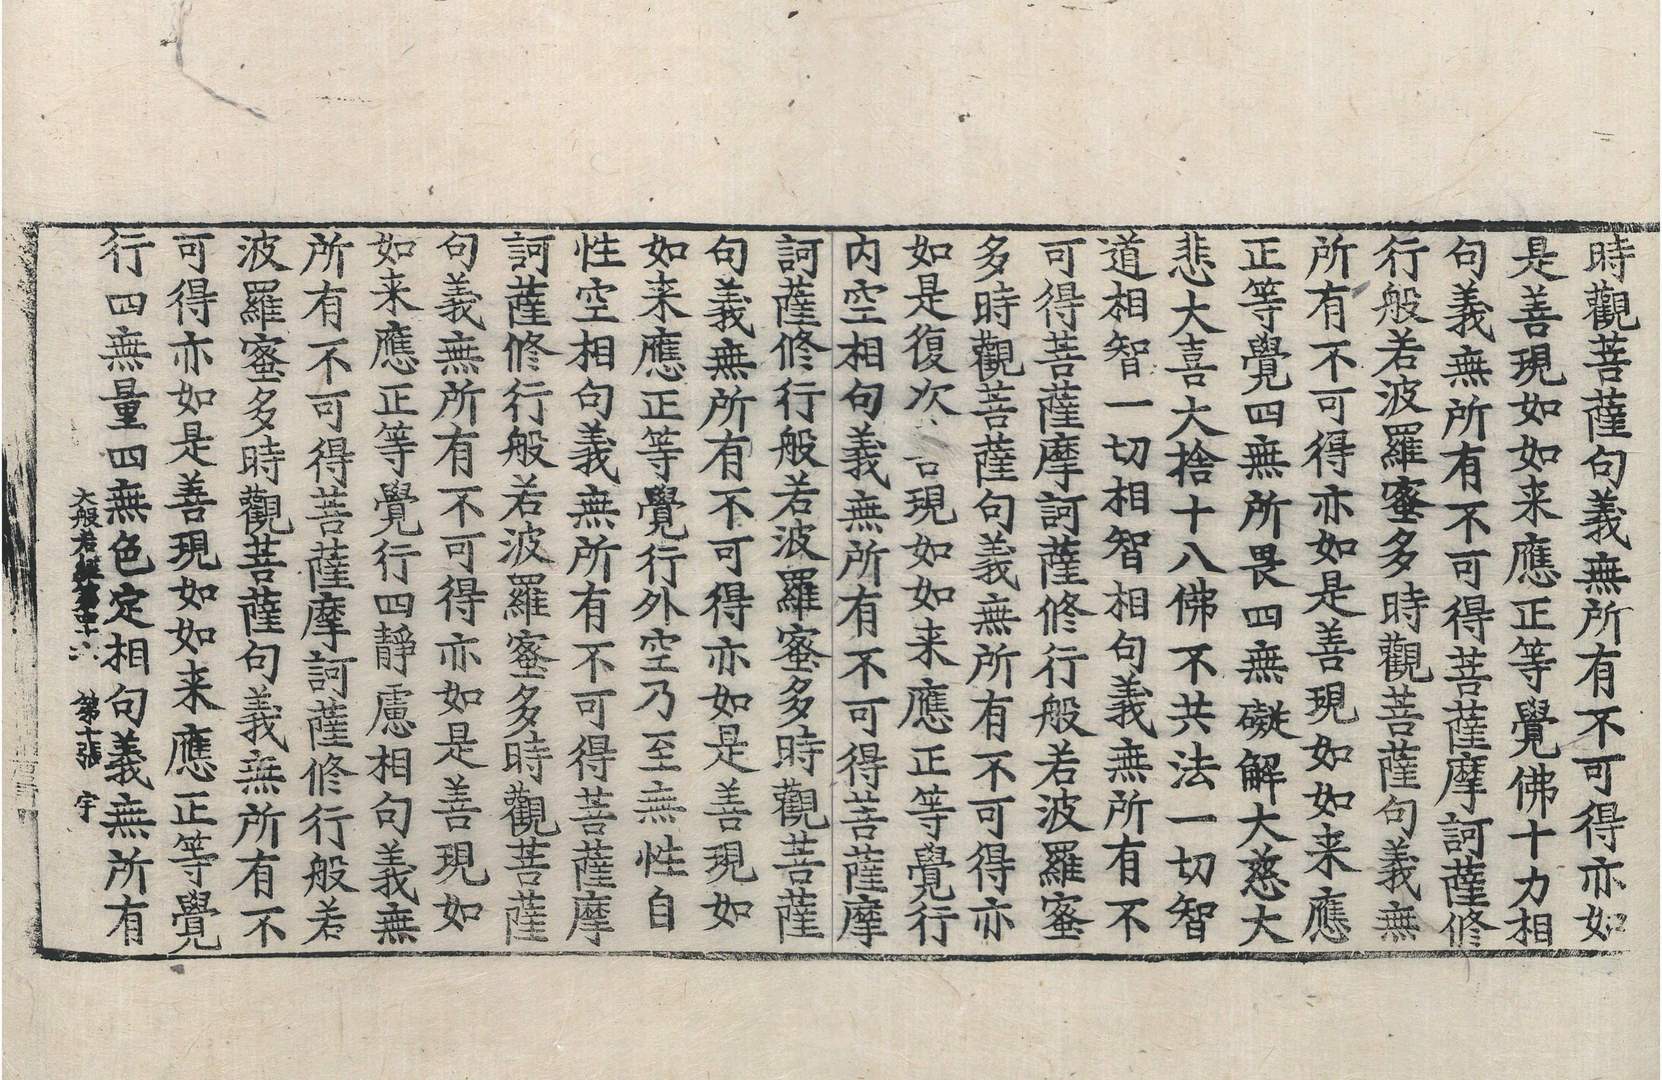 時觀菩薩句義無所有不可得亦如
是善現如如来應正等覺佛十力相
句義無所有不可得菩薩摩訶薩修
行般若波羅蜜多時觀菩薩句義無
所有不可得亦如是善現如如来應
正等覺四無所畏四無礙解大慈大
悲大喜大捨十八佛不共法一切智
道相智一切相智相句義無所有不
可得菩薩摩訶薩修行般若波羅蜜
多時觀菩薩句義無所有不可得亦
如是復次現如如来應正等覺行
内空相句義無所有不可得菩薩摩
訶薩修行般若波羅蜜多時觀菩薩
句義無所有不可得亦如是善現如
如来應正等覺行外空乃至無性自
性空相句義無所有不可得菩薩摩
訶薩修行般若波羅蜜多時觀菩薩
句義無所有不可得亦如是善現如
如来應正等覺行四靜慮相句義無
所有不可得菩薩摩訶薩修行般若
波羅蜜多時觀菩薩句義無所有不
可得亦如是善現如如来應正等覺
行四無量四無色定相句義無所有
大般若經第四十六 第十張 宇